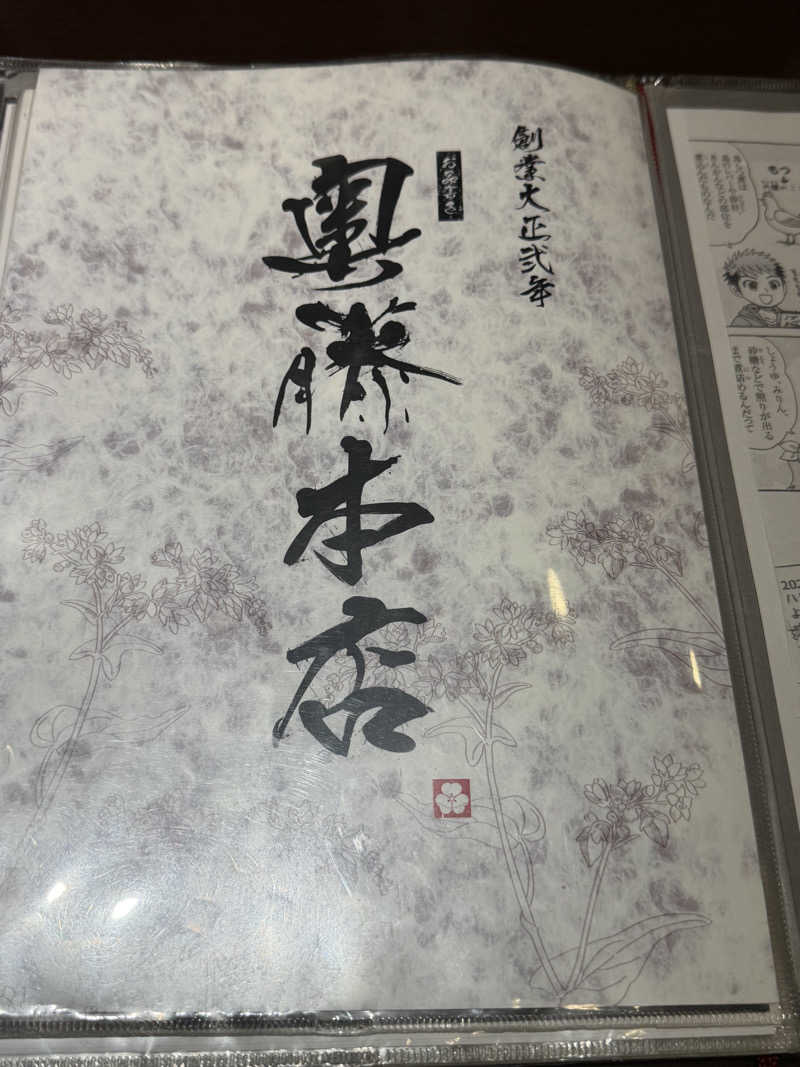 創業大正弐年
お品書き
奥藤本店
しょうゆ、みりん、
砂糖などで照りが出る
まで煮詰めるんだって